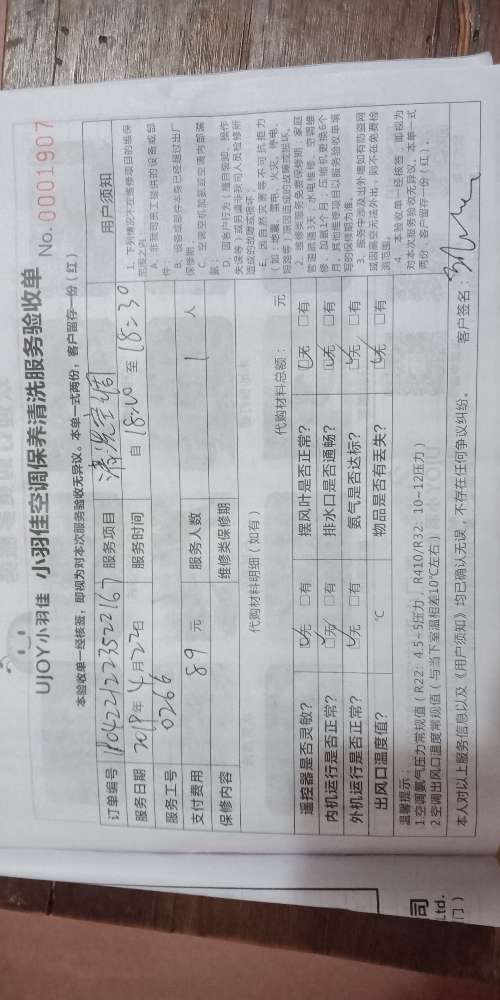 UJOY小羽佳 小羽佳空调保养清洗服务验收单 No. 0001907
本验收单一经核签，即视为对本次服务验收无异议。本单一式两份，客户留存一份（红）
订单编号 服务项目 清洗空调
服务日期 2018年4月22日 服务时间 自 18:00 至 18:30
服务工号 0266
支付费用 89 元 服务人数 1 人
保修内容 维修类保修期
代购材料明细（如有） 代购材料总额： 元
遥控器是否灵敏? ☑无 □有 摆风叶是否正常? ☑无 □有
内机运行是否正常? ☑无 □有 排水口是否通畅? ☑无 □有
外机运行是否正常? ☑无 □有 氨气是否达标? ☑无 □有
出风口温度值? ℃ 物品是否有丢失? ☑无 □有
用户须知
1. 下列情况不在维修项目的维保
范围之内
A、非我司员工提供的设备或部
件；
B、设备或部件本身已经超过出厂
保修期；
C、空调空机加装或空调内部漏
氟；
D、因客户行为（擅自装卸、操作
失误等）或是因非我司人员检修所
造成的故障或损坏
E、因自然灾害等不可抗拒力
（如：地震、雷电、火灾、停电、
短路等）原因造成的故障或损坏。
2、维修类服务免费保修期：家庭
管道疏通3天；水电维修、空调维
修、加氨3个月；压缩机更换6个
月。其他维修项目以服务验收单填
写的保修期为准。
3、服务中涉及出外墙如有防盗网
或因高空无法外出，则不在免费检
测范围。
4、本验收单一经核签，即视为
对本次服务验收无异议。本单一式
两份，客户留存一份（红）。
温馨提示：
1.空调氨气压力常规值（R22：4.5~5压力，R410/R32：10~12压力）
2.空调出风口温度常规值（与当下室温相差10℃左右）
本人对以上服务信息以及《用户须知》均已确认无误，不存在任何争议纠纷。 客户签名：
司
Ltd.
门）